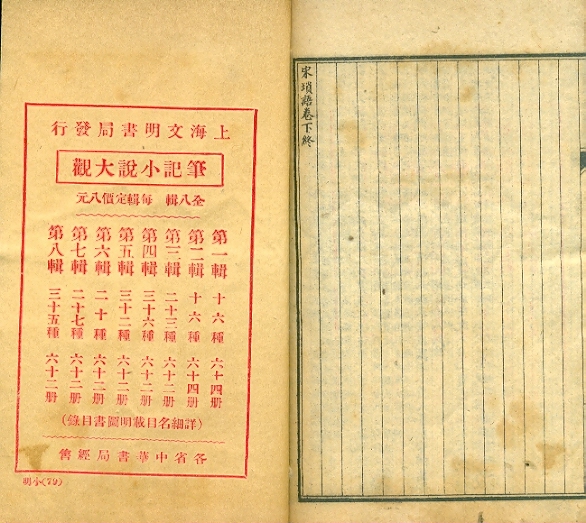 宋瑣語卷下終
上海文明書局發行
筆記小說大觀
全八輯 每輯定價八元
第一輯 十六種 六十四册
第二輯 十六種 六十四册
第三輯 二十三種 六十二册
第四輯 三十六種 六十二册
第五輯 三十二種 六十二册
第六輯 二十種 六十二册
第七輯 二十七種 六十二册
第八輯 三十五種 六十二册
(詳細名目載明圖書目錄)
各省中華書局經售
明小(79)